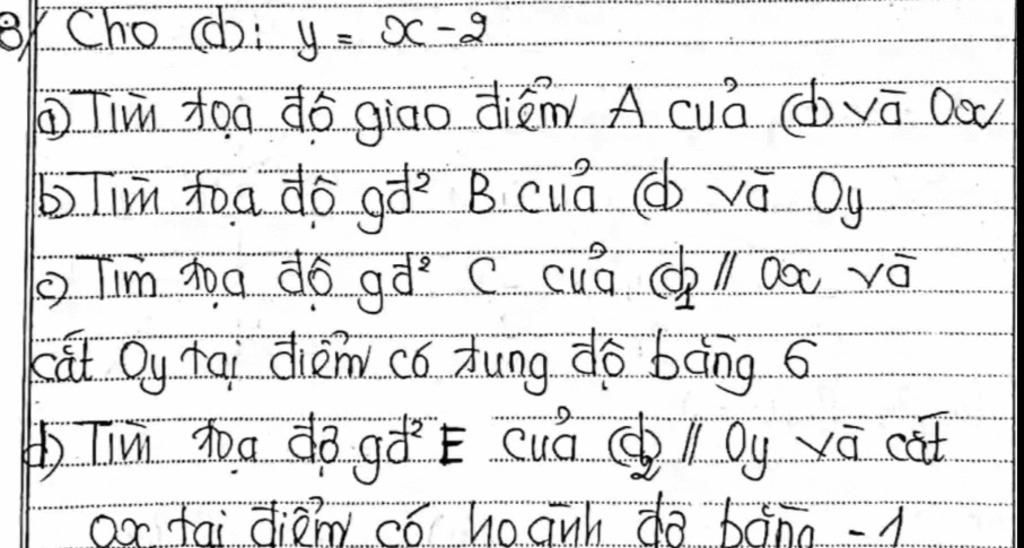 8/ Cho (d): y = x - 2
a) Tìm tọa độ giao điểm A của (d) và Ox
b) Tìm tọa độ gđ² B của (d) và Oy
c) Tìm tọa độ gđ² C của (d₁) // Ox và
cắt Oy tại điểm có tung độ bằng 6
d) Tìm tọa độ gđ² E của (d₂) // Oy và cắt
Ox tại điểm có hoành độ bằng -1